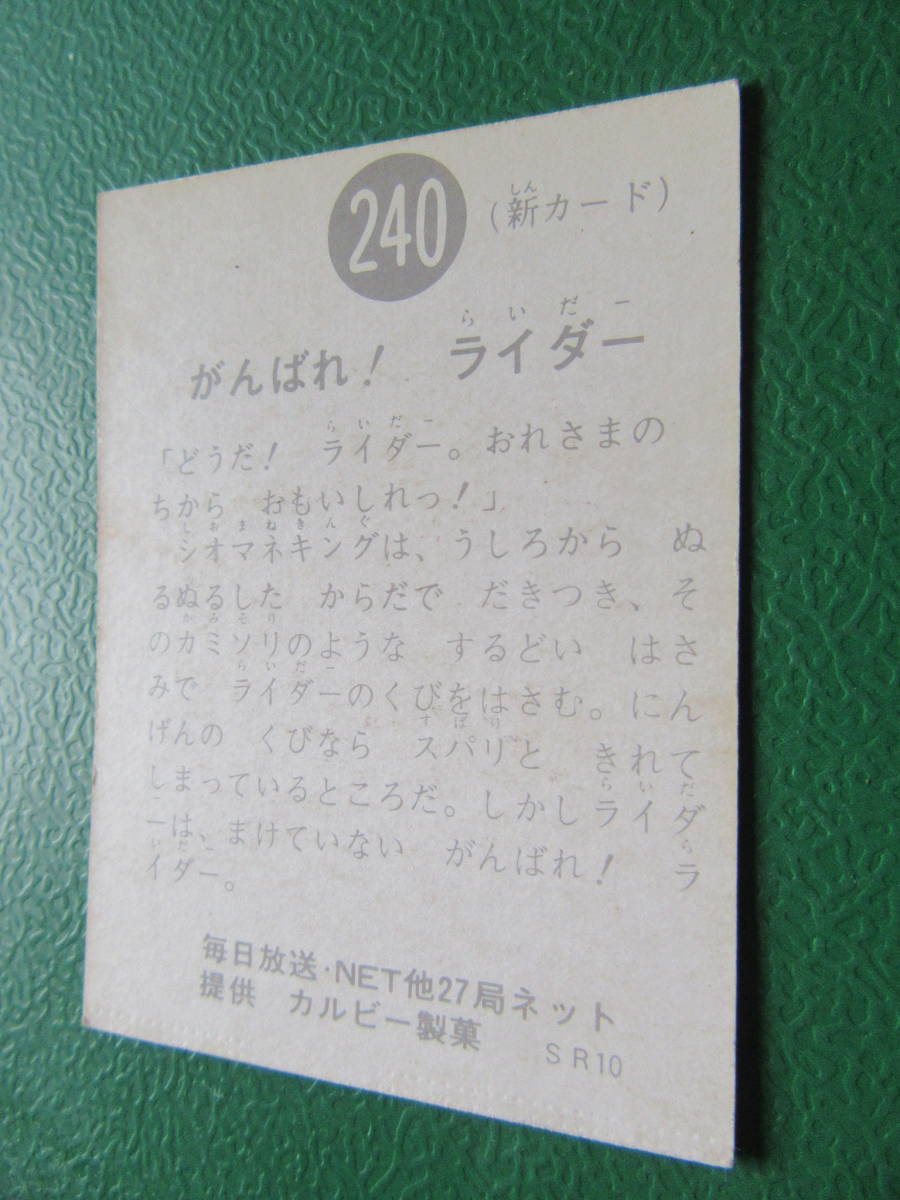 240
(新カード)
しん
らいだー
がんばれ! ライダー
らいだー
「どうだ! ライダー。おれさまの
ちから おもいしれっ!」
しおまねきんぐ
シオマネキングは、うしろから ぬ
るぬるした からだで だきつき、そ
かみそり
のカミソリのような するどい はさ
らいだー
みで ライダーのくびをはさむ。にん
すぱり
げんの くびなら スパリと きれて
らいだ
しまっているところだ。しかしライダ
ー ら
ーは、まけていない がんばれ! ラ
いだー
イダー。
毎日放送・NET他27局ネット
提供 カルビー製菓
SR10